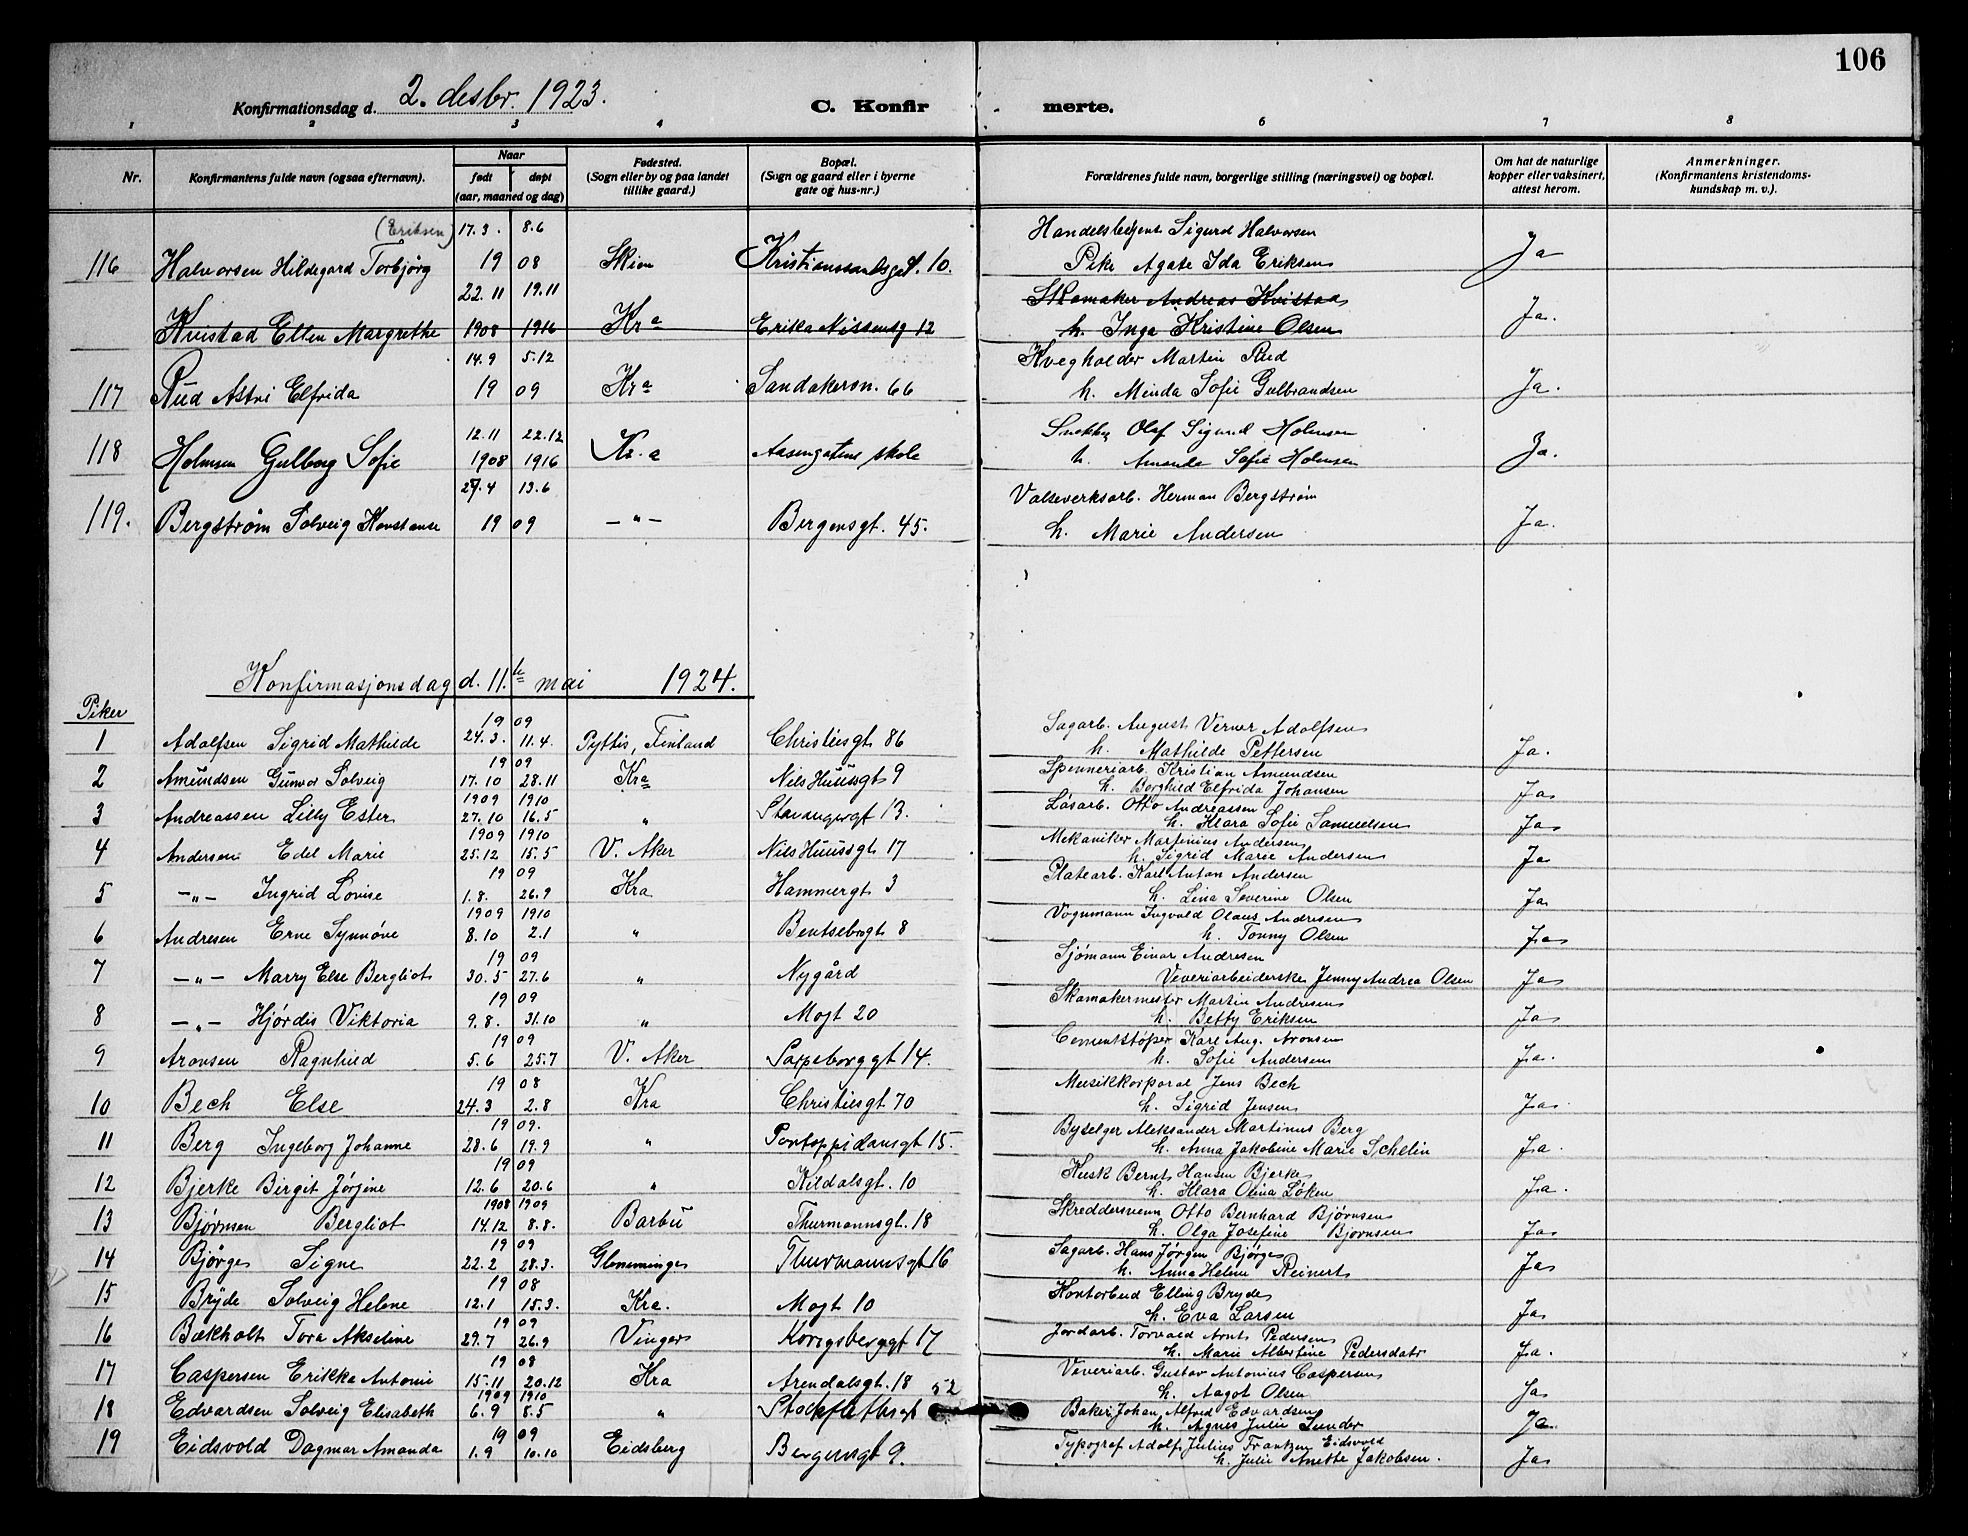 106
Konfirmationsdag d. 2. desbr. 1923. C. Konfir merte.
1 2 3 4 6 7 8
Nr. Konfirmantens fulde navn (ogsaa efternavn). Naar født døpt (aar, maaned og dag) Fødested. (Sogn eller by og paa landet tillike gaard.) Bopæl. (Sogn og gaard eller i byerne gate og hus-nr.) Forældrenes fulde navn, borgerlige stilling (næringsvei) og bopæl. Om hat de naturlige kopper eller vaksinert, attest herom. Anmerkninger. (Konfirmantens kristendoms-kundskap m. v.).
(Eriksen) 17.3. 8.6 Handelsbetjent Sigurd Halvorsen
116 Halvorsen Hildegard Torbjørg 19 08 Skien Kristianssandsgt. 10. Pike Agate Ida Eriksen Ja
22.11 19.11 Skomaker Andreas Kvistad
Kvistad Ellen Margrethe 1908 1916 Kra Erika Nissensg 12 h. Inga Kristine Olsen Ja.
14.9 5.12 Kvegholder Martin Rud
117 Rud Astri Elfrida 19 09 Kra Sandakervn. 66 h. Minda Sofie Gulbrandsen Ja.
12.11 22.12 Snekker Olaf Sigurd Holmsen
118 Holmsen Gulborg Sofie 1908 1916 Kr.a Aasengatens skole h. Amanda Sofie Holmsen Ja.
27.4 13.6 Valseverksarb. Herman Bergstrøm
119. Bergstrøm Solveig Konstanse 19 09 — " — Bergensgt. 45. h. Marie Andersen Ja.
Konfirmasjonsdag d. 11.te mai 1924.
Piker
19 09 Sagarb. August Verner Adolfsen
1 Adolfsen Sigrid Mathilde 24.3. 11.4. Pyttis, Finland Christiesgt 86 h. Mathilde Pettersen Ja.
19 09 Spenneriarb. Kristian Amundsen
2 Amundsen Gunvor Solveig 17.10 28.11 Kra Nils Huusgt 9 h. Borghild Elfrida Johansen Ja
1909 1910 Løsarb. Otto Andreassen
3 Andreassen Lilly Ester 27.10 16.5 " Stavangergt 13. h. Klara Sofie Samuelsen Ja
1909 1910 Mekaniker Martinius Andersen
4 Andersen Edel Marie 25.12 15.5 V. Aker Nils Huusgt 17 h. Sigrid Marie Andersen Ja
19 09 Platearb. Karl Anton Andersen
5 — " — Ingrid Lovise 1.8. 26.9 Kra Hammergt 3 h. Lina Severine Olsen Ja
1909 1910 Vognmann Ingvald Olaus Andresen
6 Andresen Erne Synnøve 8.10 2.1 " Bentsebrogt 8 h. Tonny Olsen Ja
19 09 Sjømann Einar Andresen
7 — " — Marry Else Bergliot 30.5 27.6 " Nygård Veveriarbeiderske Jenny Andrea Olsen Ja
19 09 Skomakermester Martin Andresen
8 — " — Hjørdis Viktoria 9.8. 31.10 " Mogt 20 h. Betty Eriksen Ja
19 09 Cementstøper Karl Aug. Aronsen
9 Aronsen Ragnhild 5.6 25.7 V. Aker Sarpsborggt 14. h. Sofie Andersen Ja.
19 08 Musikkorporal Jens Bech
10 Bech Else 24.3 2.8 Kra Christiesgt 70 h. Sigrid Jensen Ja.
19 09. Byselger Aleksander Martinus Berg
11 Berg Ingeborg Johanne 28.6 19.9 " Pontoppidansgt 15. h. Anna Jakobine Marie Schelin Ja.
19 09 Kusk Bernt Hansen Bjerke
12 Bjerke Birgit Jørgine 12.6 20.6 " Kildalsgt. 10 h. Klara Olina Løken Ja.
1908 1909 Skreddersvenn Otto Bernhard Bjørnsen
13 Bjørnsen Bergliot 14.12 8.8. Barbu Thurmannsgt. 18 h. Olga Josefine Bjørnsen Ja
19 09 Sagarb. Hans Jørgen Bjørge
14 Bjørge Signe 22.2 28.3. Glemminge Thurmannsgt 16 h. Anna Helene Reinert Ja
19 08 Kontorbud Elling Bryde
15 Bryde Solveig Helene 12.1 15.3. Kra. Mogt 10 h. Eva Larsen Ja
19 09 Jordarb. Torvald Arnt Pedersen
16 Bækholt Tora Akseline 29.7 26.9 Vinger Kongsberggt 17 h. Marie Albertine Pedersdatr Ja.
19 08 Veveriarb. Gustav Antonius Caspersen
17 Caspersen Erikka Antonie 15.11 20.12 Kra Arendalsgt. 18 h. Aagot Olsen Ja
1909 1910 52 Baker Johan Alfred Edvardsen
18 Edvardsen Solveig Elisabeth 6.9 8.5 " Stockflethsgt h. Agnes Julie Sunder Ja
19 09 Typograf Adolf Julius Frantzen Eidsvold
19 Eidsvold Dagmar Amanda 1.9 10.10 Eidsberg Bergensgt 9. h. Julie Anette Jakobsen. Ja